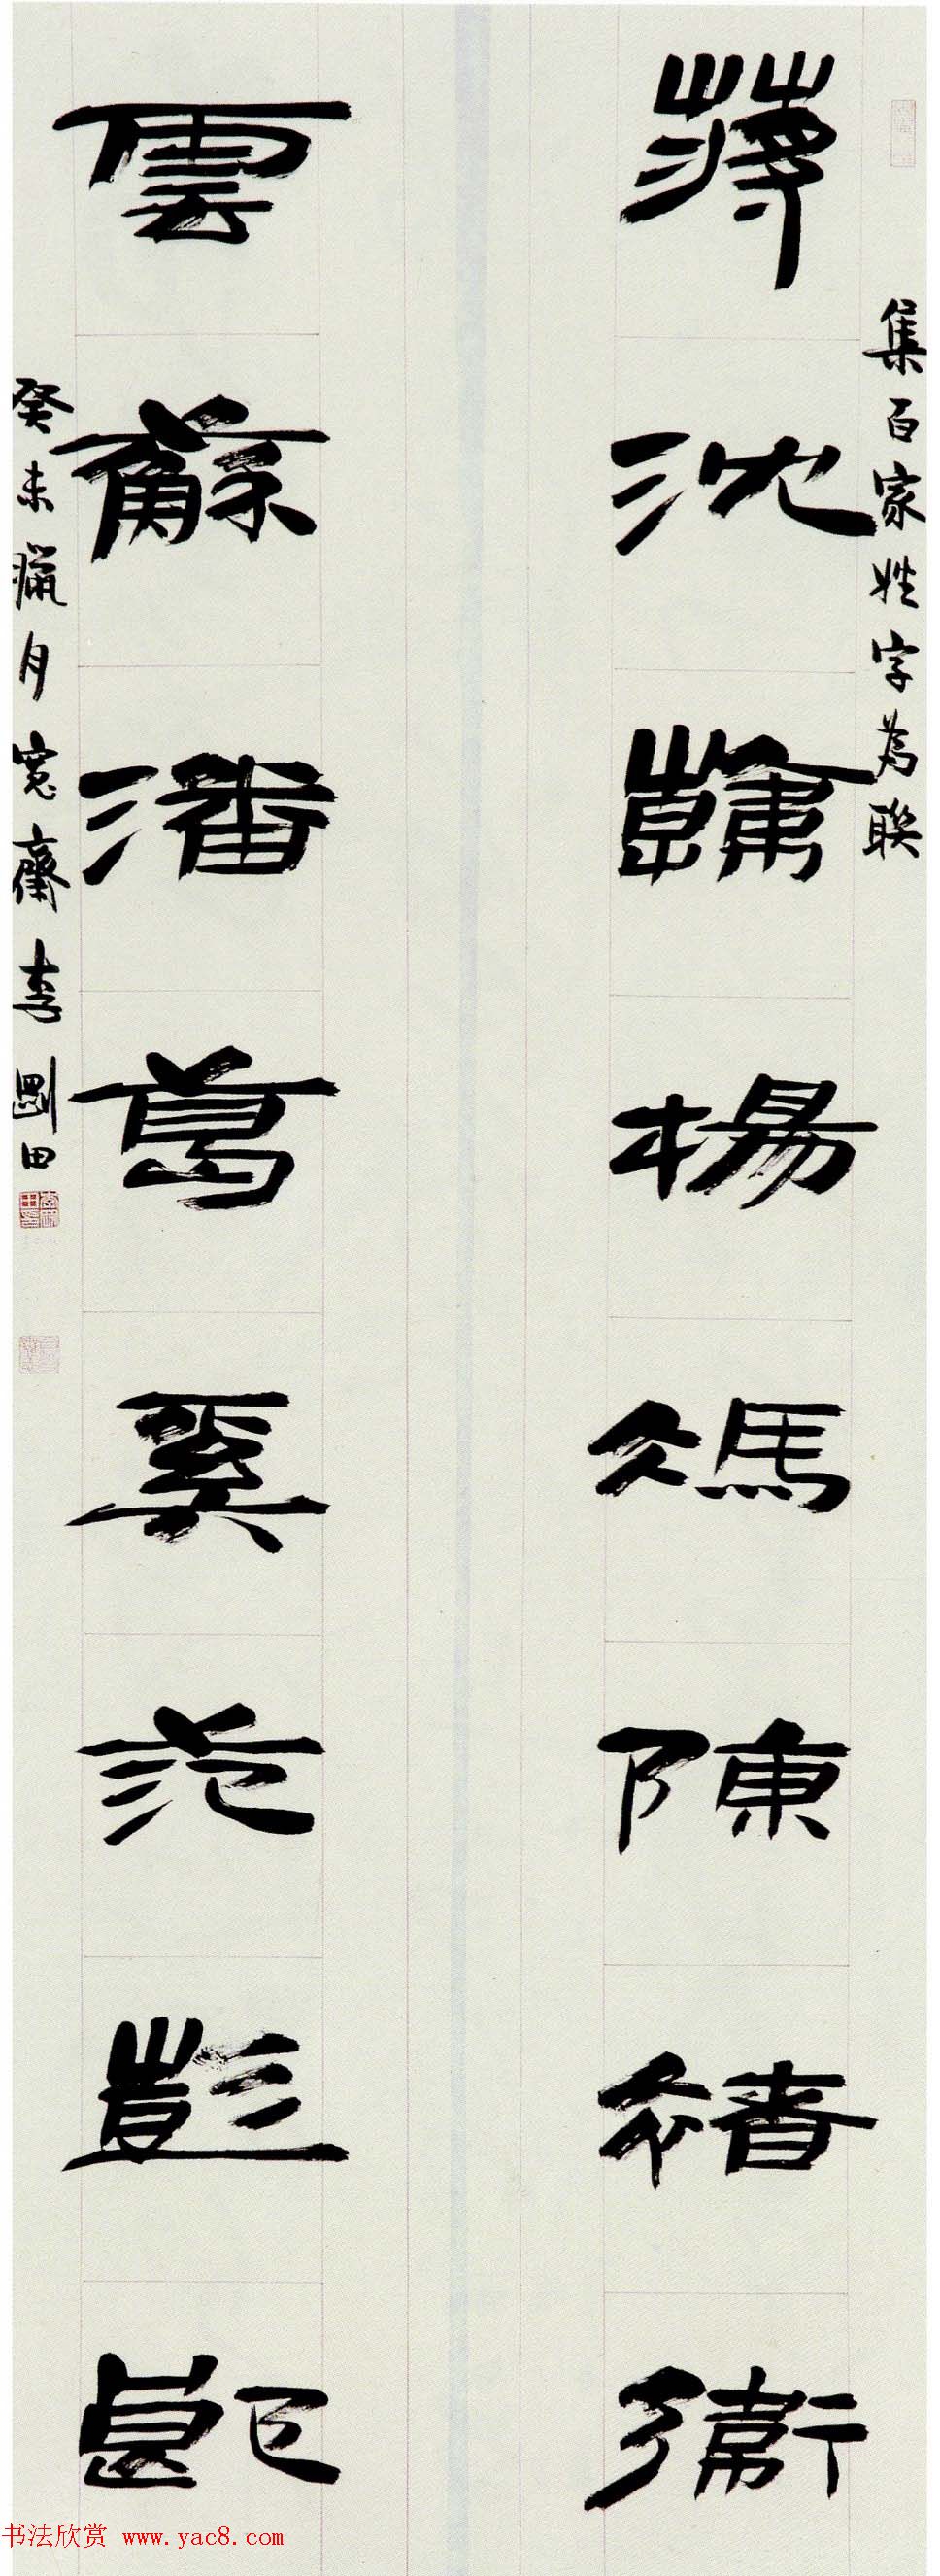 集百家姓字為联
蔣沈韓楊馮陳褚衛
雲蘇潘葛奚范彭郎
癸未臘月寬齋李剛田
书法欣赏 www.yac8.com